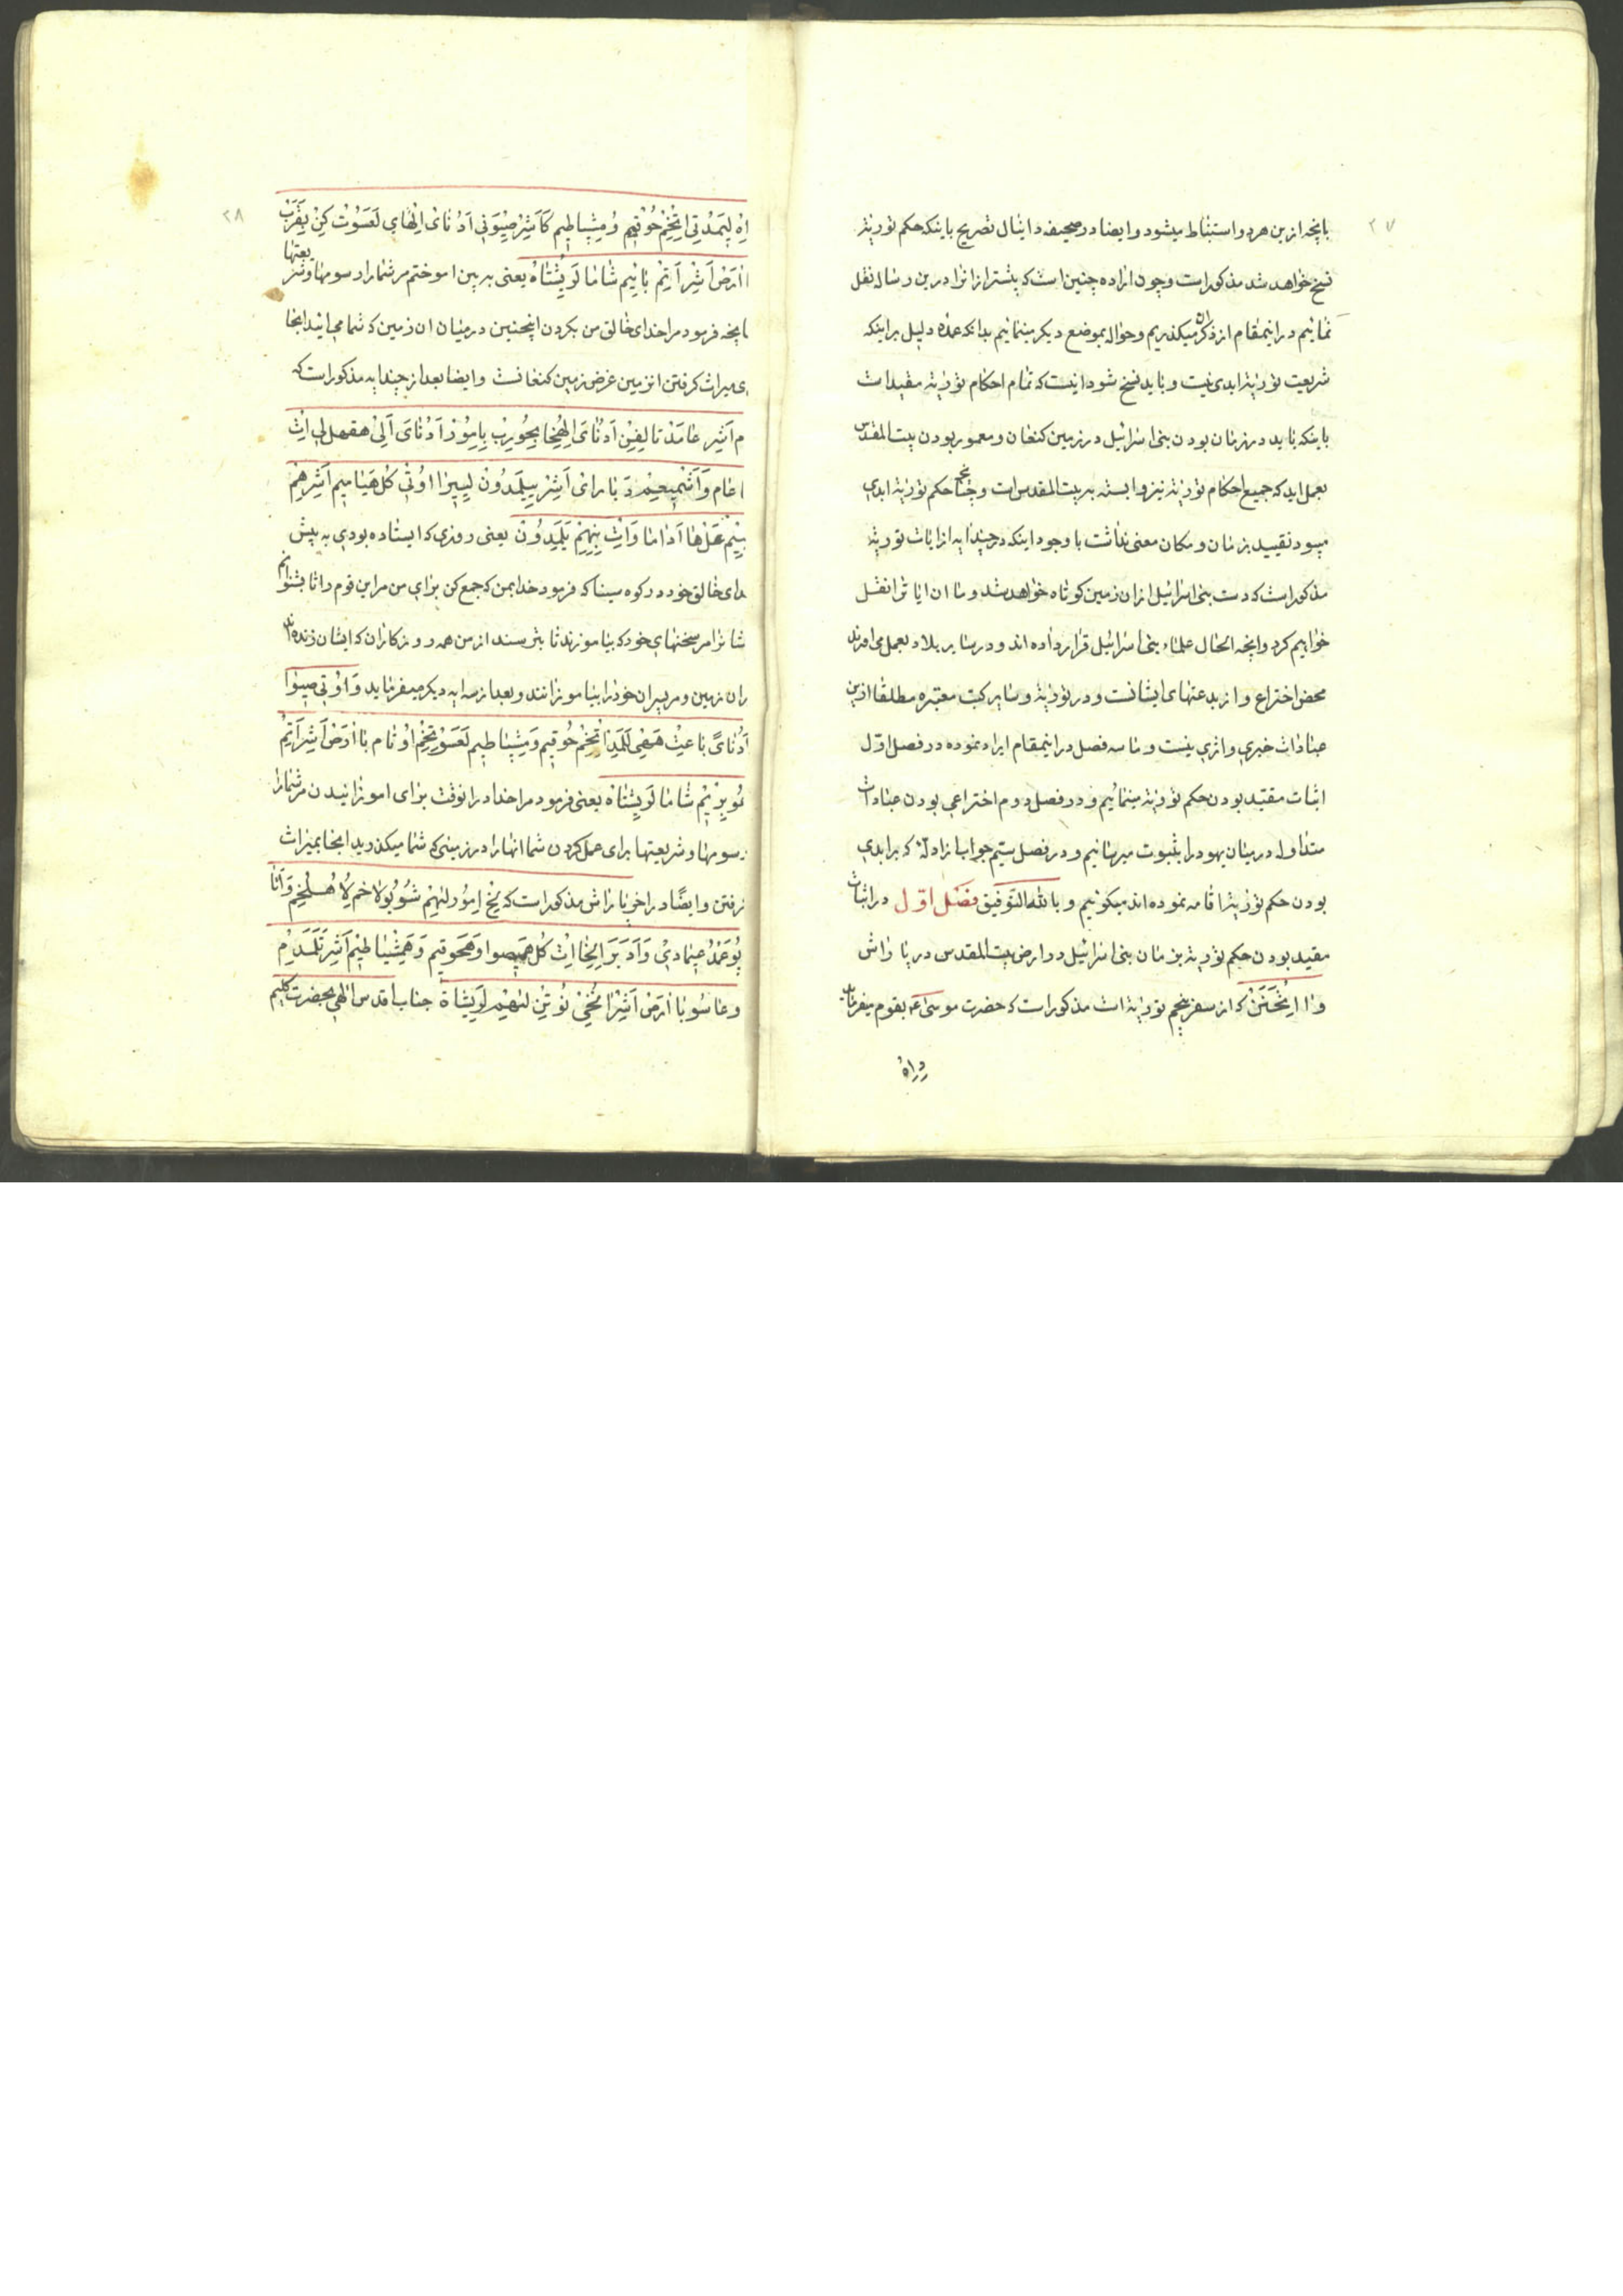 ۲۷
بانچه ازین هرد و استنباط میشود و ایضا در صحیفه دانیال تصریح باینکه حکم توریة
نسخ خواهد شد مذکور است و چون اراده چنین است که بیشتر از انرا درین رساله نقل
نمائیم در اینمقام از ذکر ان میکذریم و حواله بموضع دیکر مینمائیم بدانکه عمده دلیل بر اینکه
شریعت توریة ابدی نیست و باید نسخ شود انیست که تمام احکام توریة مقید است
باینکه باید در زمان بودن بنی اسرائیل در زمین کنعان و معمور بودن بیت المقدس
بعمل اید که جمیع احکام توریة نیز وابسته به بیت المقدس است و چنانچه حکم توریة ابدی
میبود تقیید بزمان و مکان معنی نداشت با وجود اینکه در چند ایه از ایات توریة
مذکور است که دست بنی اسرائیل از ان زمین کوتاه خواهد شد و ما ان ایات را نقل
خواهیم کرد و انچه الحال علماء بنی اسرائیل قرار داده اند و در سایر بلاد بعمل می اورند
محض اختراع و از بدعتهای ایشانست و در توریة و سایر کتب معتبره مطلقا ازین
عبادات خبری و اثری نیست و ما سه فصل در اینمقام ایراد نموده در فصل اوّل
اثبات مقیّد بودن حکم توریة مینمائیم و در فصل دوم اختراعی بودن عبادات
متداوله در میان یهود را بثبوت میرسانیم و در فصل سیّم جواب از ادلّه که بر ابدی
بودن حکم توریة اقامه نموده اند میکوئیم و بالله التوفیق فصل اوّل در اثبات
مقید بودن حکم توریة بزمان بنی اسرائیل در ارض بیت المقدس در پاراش
وا ایتحنن که از سفر پنجم توریة است مذکور است که حضرت موسی ع بقوم میفرماید
وراه
۲۸
اه لیمدتی اتخم حوقیم ومیشباطیم کا اشر صیونی ادنای الهای لعسوت کن بقرب
اارض اشر اتم بائیم شاما لریشتاه یعنی به بین اموختم مر شما را رسومها وشریعتها
انچه فرمود مرا خدای خالق من بکردن اینچنین در میان ان زمین که شما می ائید انجا
ی میراث کرفتن انزمین غرض زمین کنعانست و ایضا بعد از چند ایه مذکور است که
م اشر عامدتا لیفین ادنای الهیخا بحوریب بامور ادنای الی هقهل لی اث
اعام و اشمیعیم دباراای اشر ییلمدون لییرا اوتی کل هیامیم اشر هم
ییم عل ها اداما واث بنیهم یلمدون یعنی روزی که ایستاده بودی به پیش
دای خالق خود در کوه سینا که فرمود خدا بمن که جمع کن برای من مر این قوم را تا بشنوانم
شانرا مر سخنهای خود که بیاموزند تا بترسند از من همه روزکاران که ایشان زنده اند
ران زمین و مر پسران خود را بیاموزانند و بعد از سه ایه دیکر میفرماید و اوتی صیوا
ادنای باعیث ههی للمد اتخم حوقیم ومیشباطیم لعسوتخم اوتام با ارض اشر اتم
عوبریم شاما لریشتاه یعنی فرمود مرا خدا در انوقت برای اموزانیدن مر شما را
رسومها و شریعتها برای عمل کردن شما انها را در زمینی که شما میکذرید انجا بمیراث
کرفتن و ایضًا در اخر پاراش مذکور است که یخ امور لهیم شوبولاخم لاهلخم واتا
پوعمد عیمادی وادبرا الخا اث کل همیصوا وهحوقیم وهمشپاطیم اشر تلمدم
وعاسو با ارض اشر انخی نوتن لاهیم لریشتاه جناب اقدس الهی بحضرت کلیم